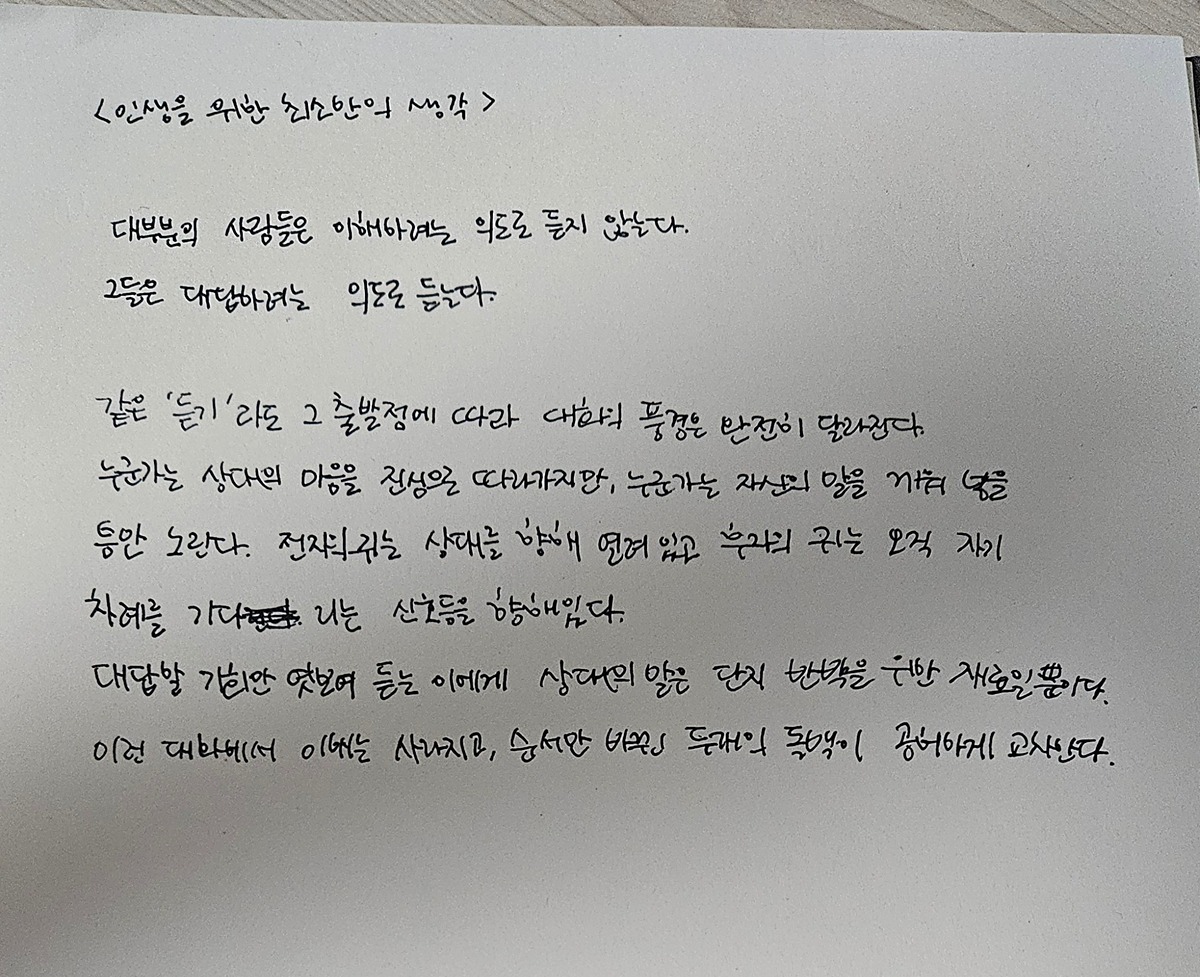 <인생을 위한 최소한의 생각>
대부분의 사람들은 이해하려는 의도로 듣지 않는다.
그들은 대답하려는 의도로 듣는다.
같은 '듣기'라도 그 출발점에 따라 대화의 풍경은 완전히 달라진다.
누군가는 상대의 마음을 진심으로 따라가지만, 누군가는 자신의 말을 끼워 넣을
틈만 노린다. 전자의 귀는 상대를 향해 열려 있고 후자의 귀는 오직 자기
차례를 기다리는 신호등을 향해있다.
대답할 기회만 엿보며 듣는 이에게 상대의 말은 단지 반박을 위한 재료일뿐이다.
이런 대화에서 이해는 사라지고, 순서만 바뀐 두개의 독백이 공허하게 교차한다.